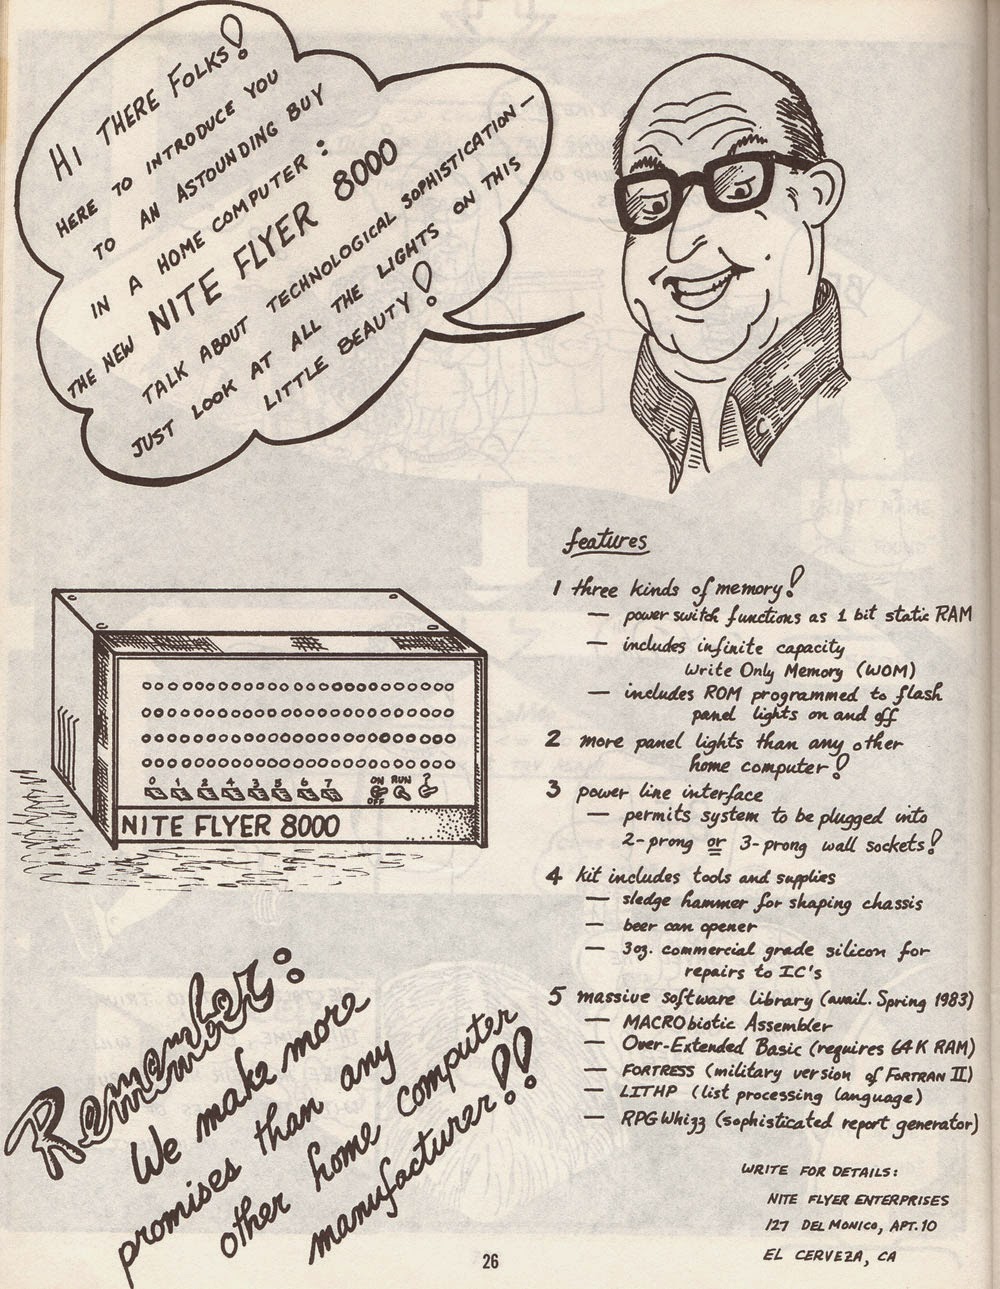 HI THERE FOLKS!
HERE TO INTRODUCE YOU
TO AN ASTOUNDING BUY
IN A HOME COMPUTER:
THE NEW NITE FLYER 8000
TALK ABOUT TECHNOLOGICAL SOPHISTICATION—
JUST LOOK AT ALL THE LIGHTS ON THIS
LITTLE BEAUTY!
features
1 three kinds of memory!
— power switch functions as 1 bit static RAM
— includes infinite capacity
Write Only Memory (WOM)
— includes ROM programmed to flash
panel lights on and off
2 more panel lights than any other
home computer!
3 power line interface
— permits system to be plugged into
2-prong or 3-prong wall sockets!
4 kit includes tools and supplies
— sledge hammer for shaping chassis
— beer can opener
— 3oz. commercial grade silicon for
repairs to IC's
5 massive software library (avail. Spring 1983)
— MACRObiotic Assembler
— Over-Extended Basic (requires 64K RAM)
— FORTRESS (military version of FORTRAN II)
— LITHP (list processing language)
— RPG Whizz (sophisticated report generator)
0 1 2 4 3 5 6 7 ON RUN ?
OFF
NITE FLYER 8000
Remember:
We make more
promises than any
other home computer
manufacturer!!
WRITE FOR DETAILS:
NITE FLYER ENTERPRISES
127 DEL MONICO, APT. 10
EL CERVEZA, CA
26